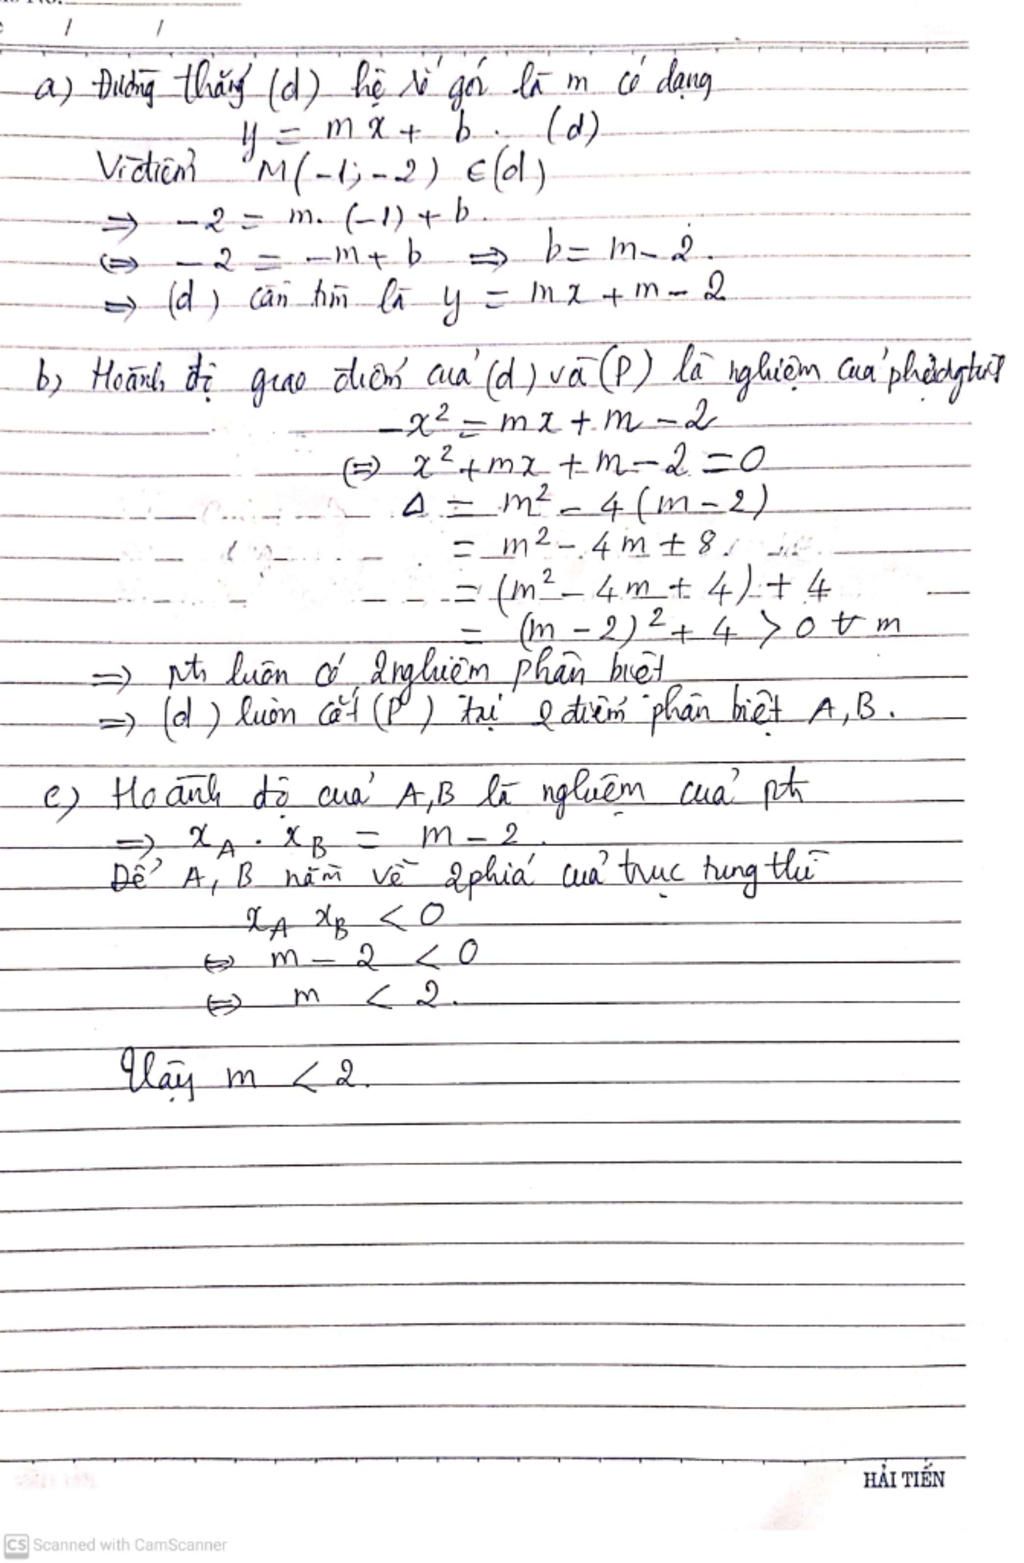 a) Đường thẳng (d) hệ số góc là m có dạng
y = mx + b. (d)
Vì điểm M(-1; -2) ∈ (d)
⇒ -2 = m. (-1) + b.
⇔ -2 = -m + b ⇒ b = m - 2.
⇒ (d) cần tìm là y = mx + m - 2
b) Hoành độ giao điểm của (d) và (P) là nghiệm của phương trình
-x² = mx + m - 2
⇔ x² + mx + m - 2 = 0
Δ = m² - 4(m - 2)
= m² - 4m + 8.
= (m² - 4m + 4) + 4
= (m - 2)² + 4 > 0 ∀ m
⇒ pt luôn có 2 nghiệm phân biệt
⇒ (d) luôn cắt (P) tại 2 điểm phân biệt A, B.
c) Hoành độ của A, B là nghiệm của pt
⇒ x_A . x_B = m - 2.
Để A, B nằm về 2 phía của trục tung thì
x_A x_B < 0
⇔ m - 2 < 0
⇔ m < 2.
Vậy m < 2.
HẢI TIẾN
CS Scanned with CamScanner